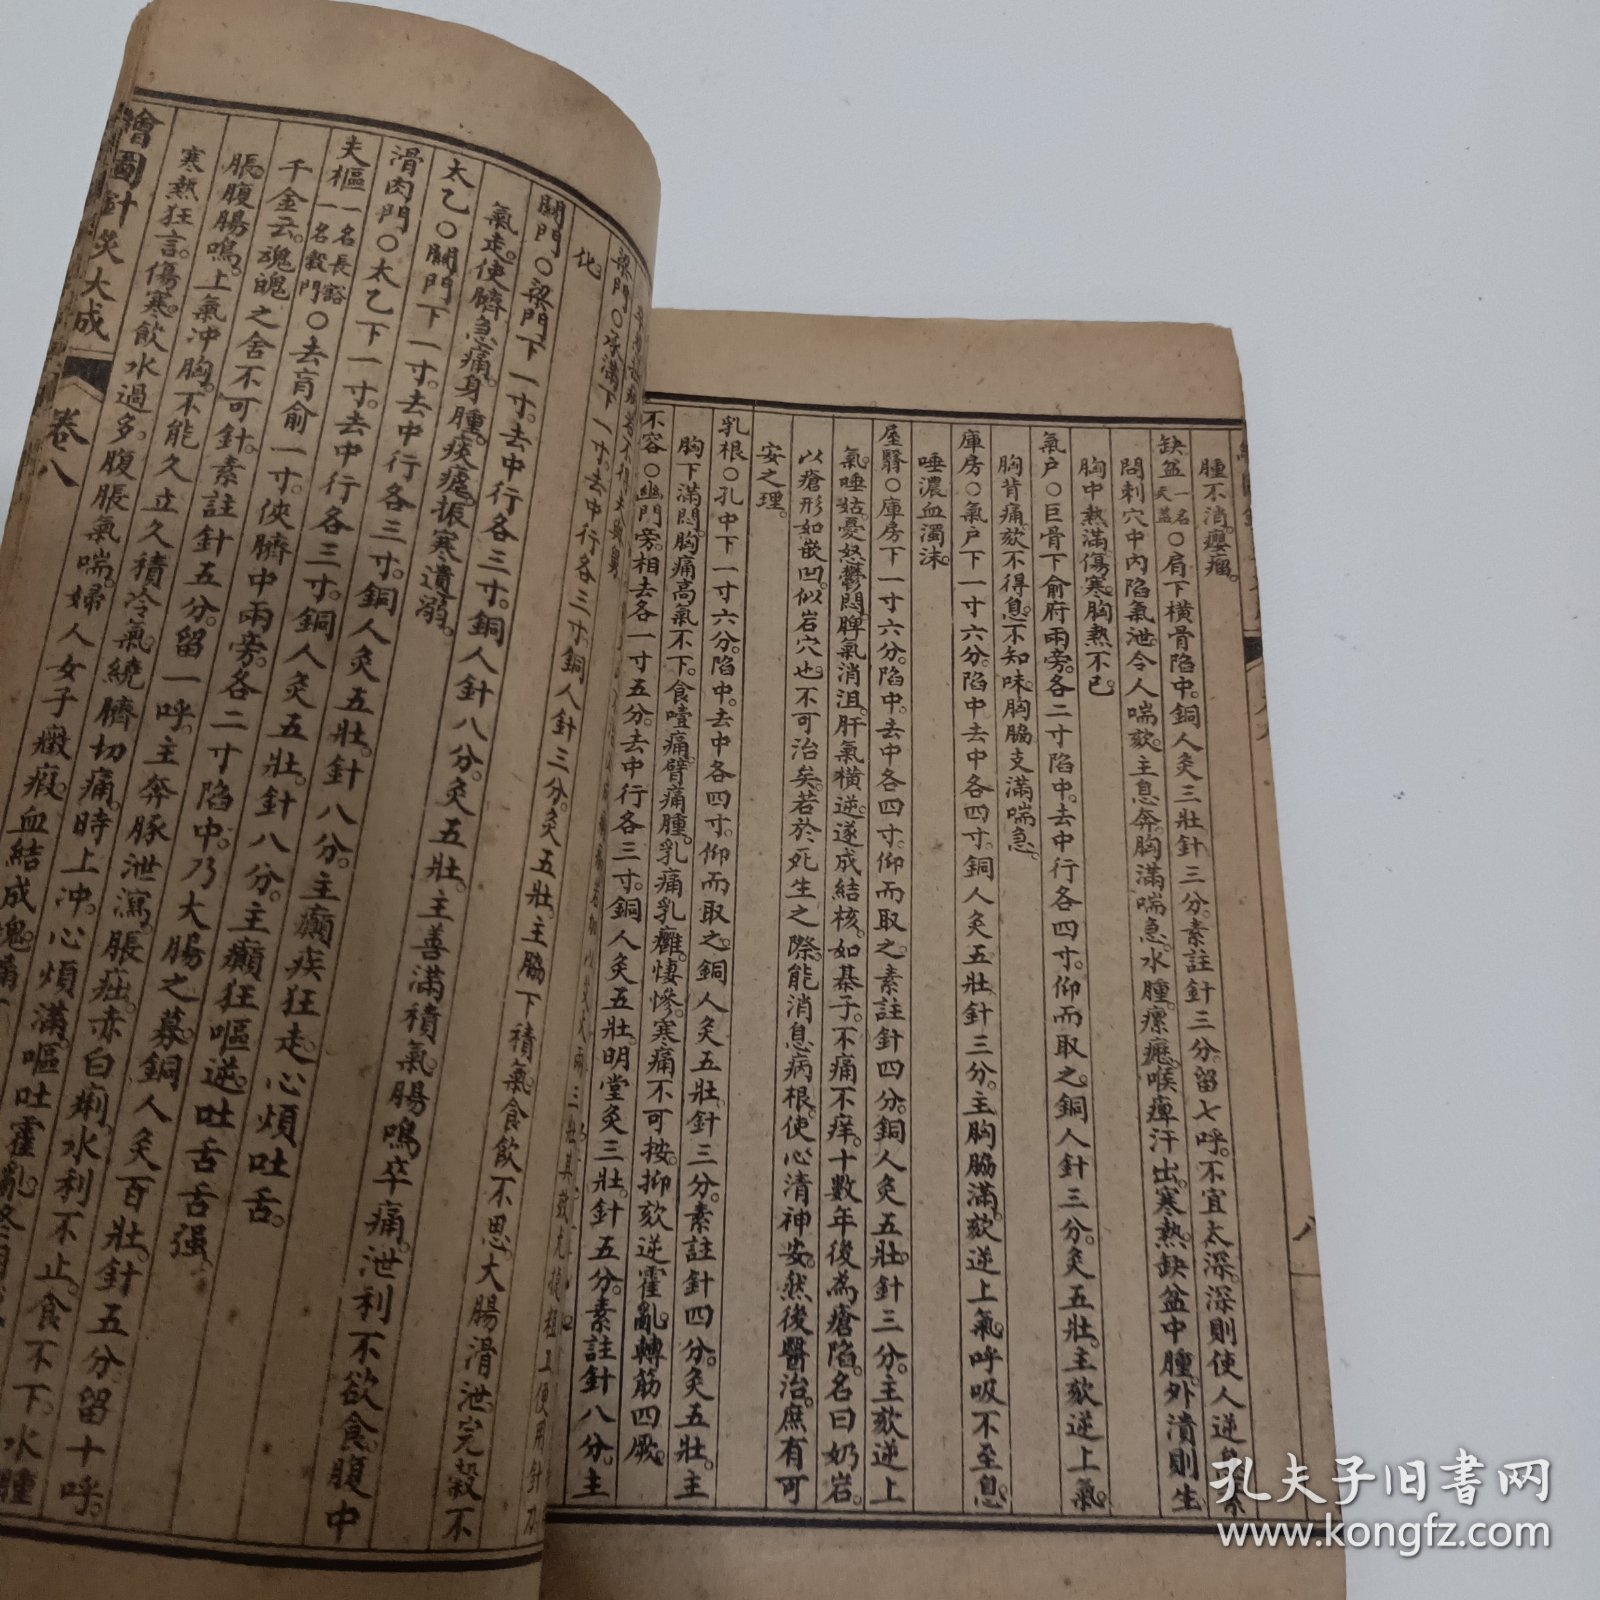 腫不消。癭瘤。
缺盆一名天蓋○肩下橫骨陷中。銅人灸三壯。針三分。素註針三分。留七呼。不宜太深。深則使人逆息。素
問刺穴中內陷氣泄令人喘欬。主息奔。胸滿喘急。水腫。瘰癧。喉痺汗出。寒熱。缺盆中腫。外潰則生
胸中熱滿傷寒胸熱不已。
氣戶○巨骨下俞府兩旁。各二寸陷中。去中行各四寸。仰而取之。銅人針三分。灸五壯。主欬逆上氣。
胸背痛。欬不得息。不知味。胸脇支滿喘急。
庫房○氣戶下一寸六分。陷中。去中各四寸。銅人灸五壯。針三分。主胸脇滿。欬逆上氣。呼吸不至息。
唾濃血濁沫。
屋翳○庫房下一寸六分。陷中。去中各四寸。仰而取之。素註針四分。銅人灸五壯。針三分。主欬逆上
氣唾
憂怒鬱悶。脾氣消沮。肝氣橫逆。遂成結核。如棊子。不痛不痒。十數年後為瘡陷。名曰奶岩。
以瘡形如嵌凹。似岩穴也。不可治矣。若於死生之際。能消息病根。使心清神安。然後醫治。庶有可
安之理。
乳根○孔中下一寸六分。陷中。去中各四寸。仰而取之。銅人灸五壯。針三分。素註針四分。灸五壯。主
胸下滿悶。胸痛高氣不下。食噎痛。臂痛腫。乳痛乳癰。悽慘。寒痛不可按。抑欬逆霍亂。轉筋四厥。
不容○幽門旁。相去各一寸五分。去中行各三寸。銅人灸五壯。明堂灸三壯。針五分。素註針八分。主
梁門○承滿下一寸。去中行各三寸。銅人針三分。灸五壯。主脇下積氣。食飲不思。大腸滑泄。完穀不
化。
關門○梁門下一寸。去中行各三寸。銅人針八分。灸五壯。主善滿積氣。腸鳴卒痛。泄利不欲食。腹中
氣走。使臍急痛。身腫。痰瘧。振寒遺溺。
太乙○關門下一寸。去中行各三寸。銅人灸五壯。針八分。主癲疾狂走。心煩吐舌。
滑肉門○太乙下一寸。去中行各三寸。銅人灸五壯。針八分。主癲狂嘔逆。吐舌舌强。
天樞一名長谿一名穀門○去肓俞一寸。俠臍中兩旁。各二寸陷中。乃大腸之募。銅人灸百壯。針五分。留十呼。
千金云。魂魄之舍不可針。素註針五分。留一呼。主奔豚泄瀉。脹疝。赤白痢。水利不止。食不下。水腫
脹腹腸鳴。上氣冲胸。不能久立久積冷氣。繞臍切痛。時上冲心。煩滿。嘔吐霍亂。
寒熱狂言。傷寒。飲水過多。腹脹氣喘。婦人女子癥瘕。血結成塊。
繪圖針灸大成
卷八
八
孔夫子旧书网
www.kongfz.com